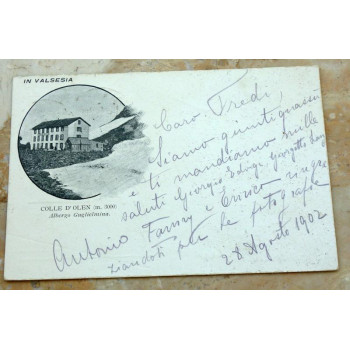 IN VALSESIA
COLLE D'OLEN (m. 3006)
Albergo Guglielmina.
Caro Fredi,
Siamo giunti quassù
e ti mandiamo mille
saluti Giorgio Luigi Giorgetto
Antonio Fanny e Enrico ringra
ziandoti per le fotografie
28 Agosto 1902